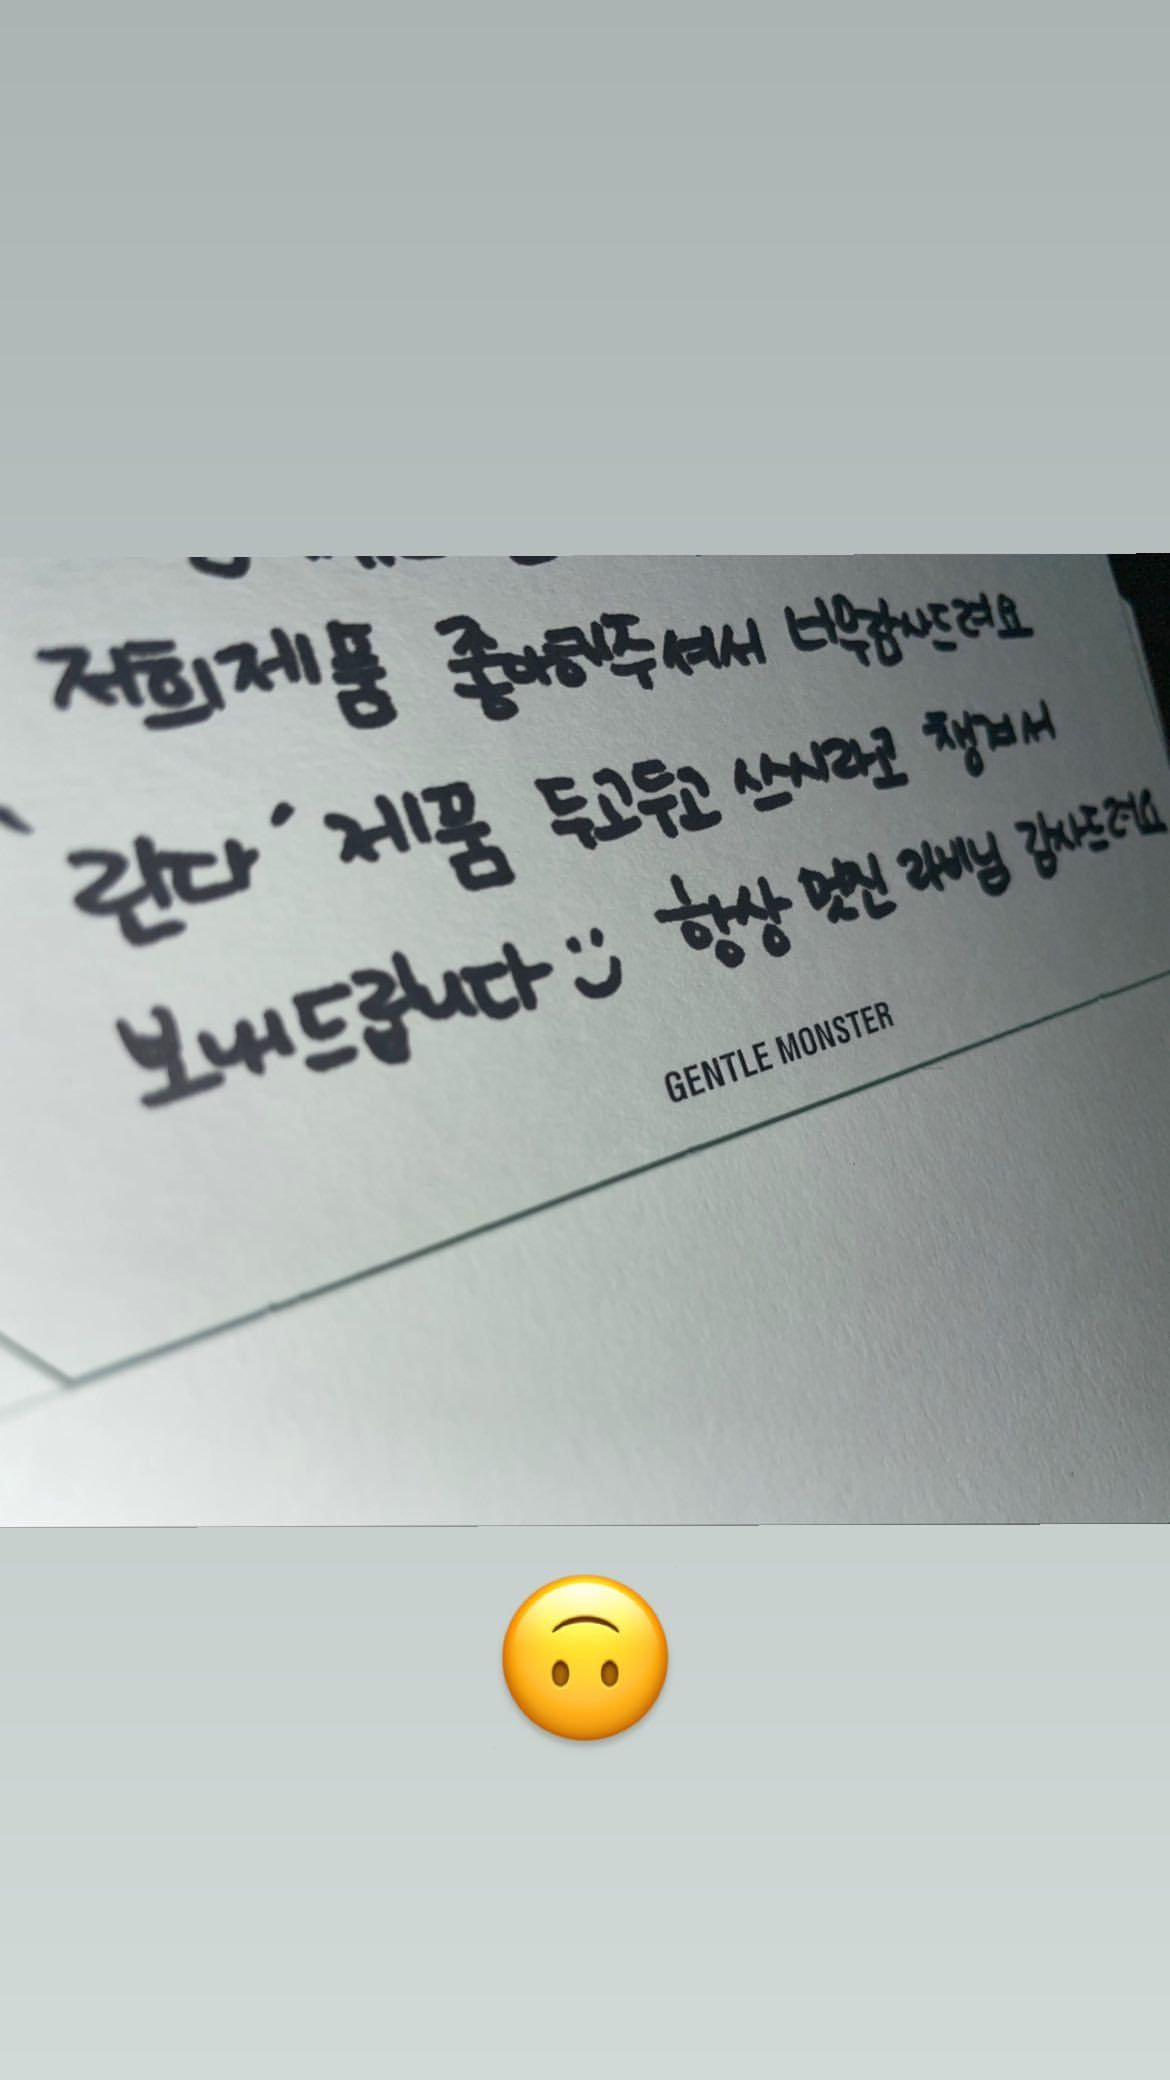 저희제품 좋아해주셔서 너무감사드려요
'란다' 제품 두고두고 쓰시라고 챙겨서
보내드립니다 항상 멋진 라비님 감사드려요
GENTLE MONSTER